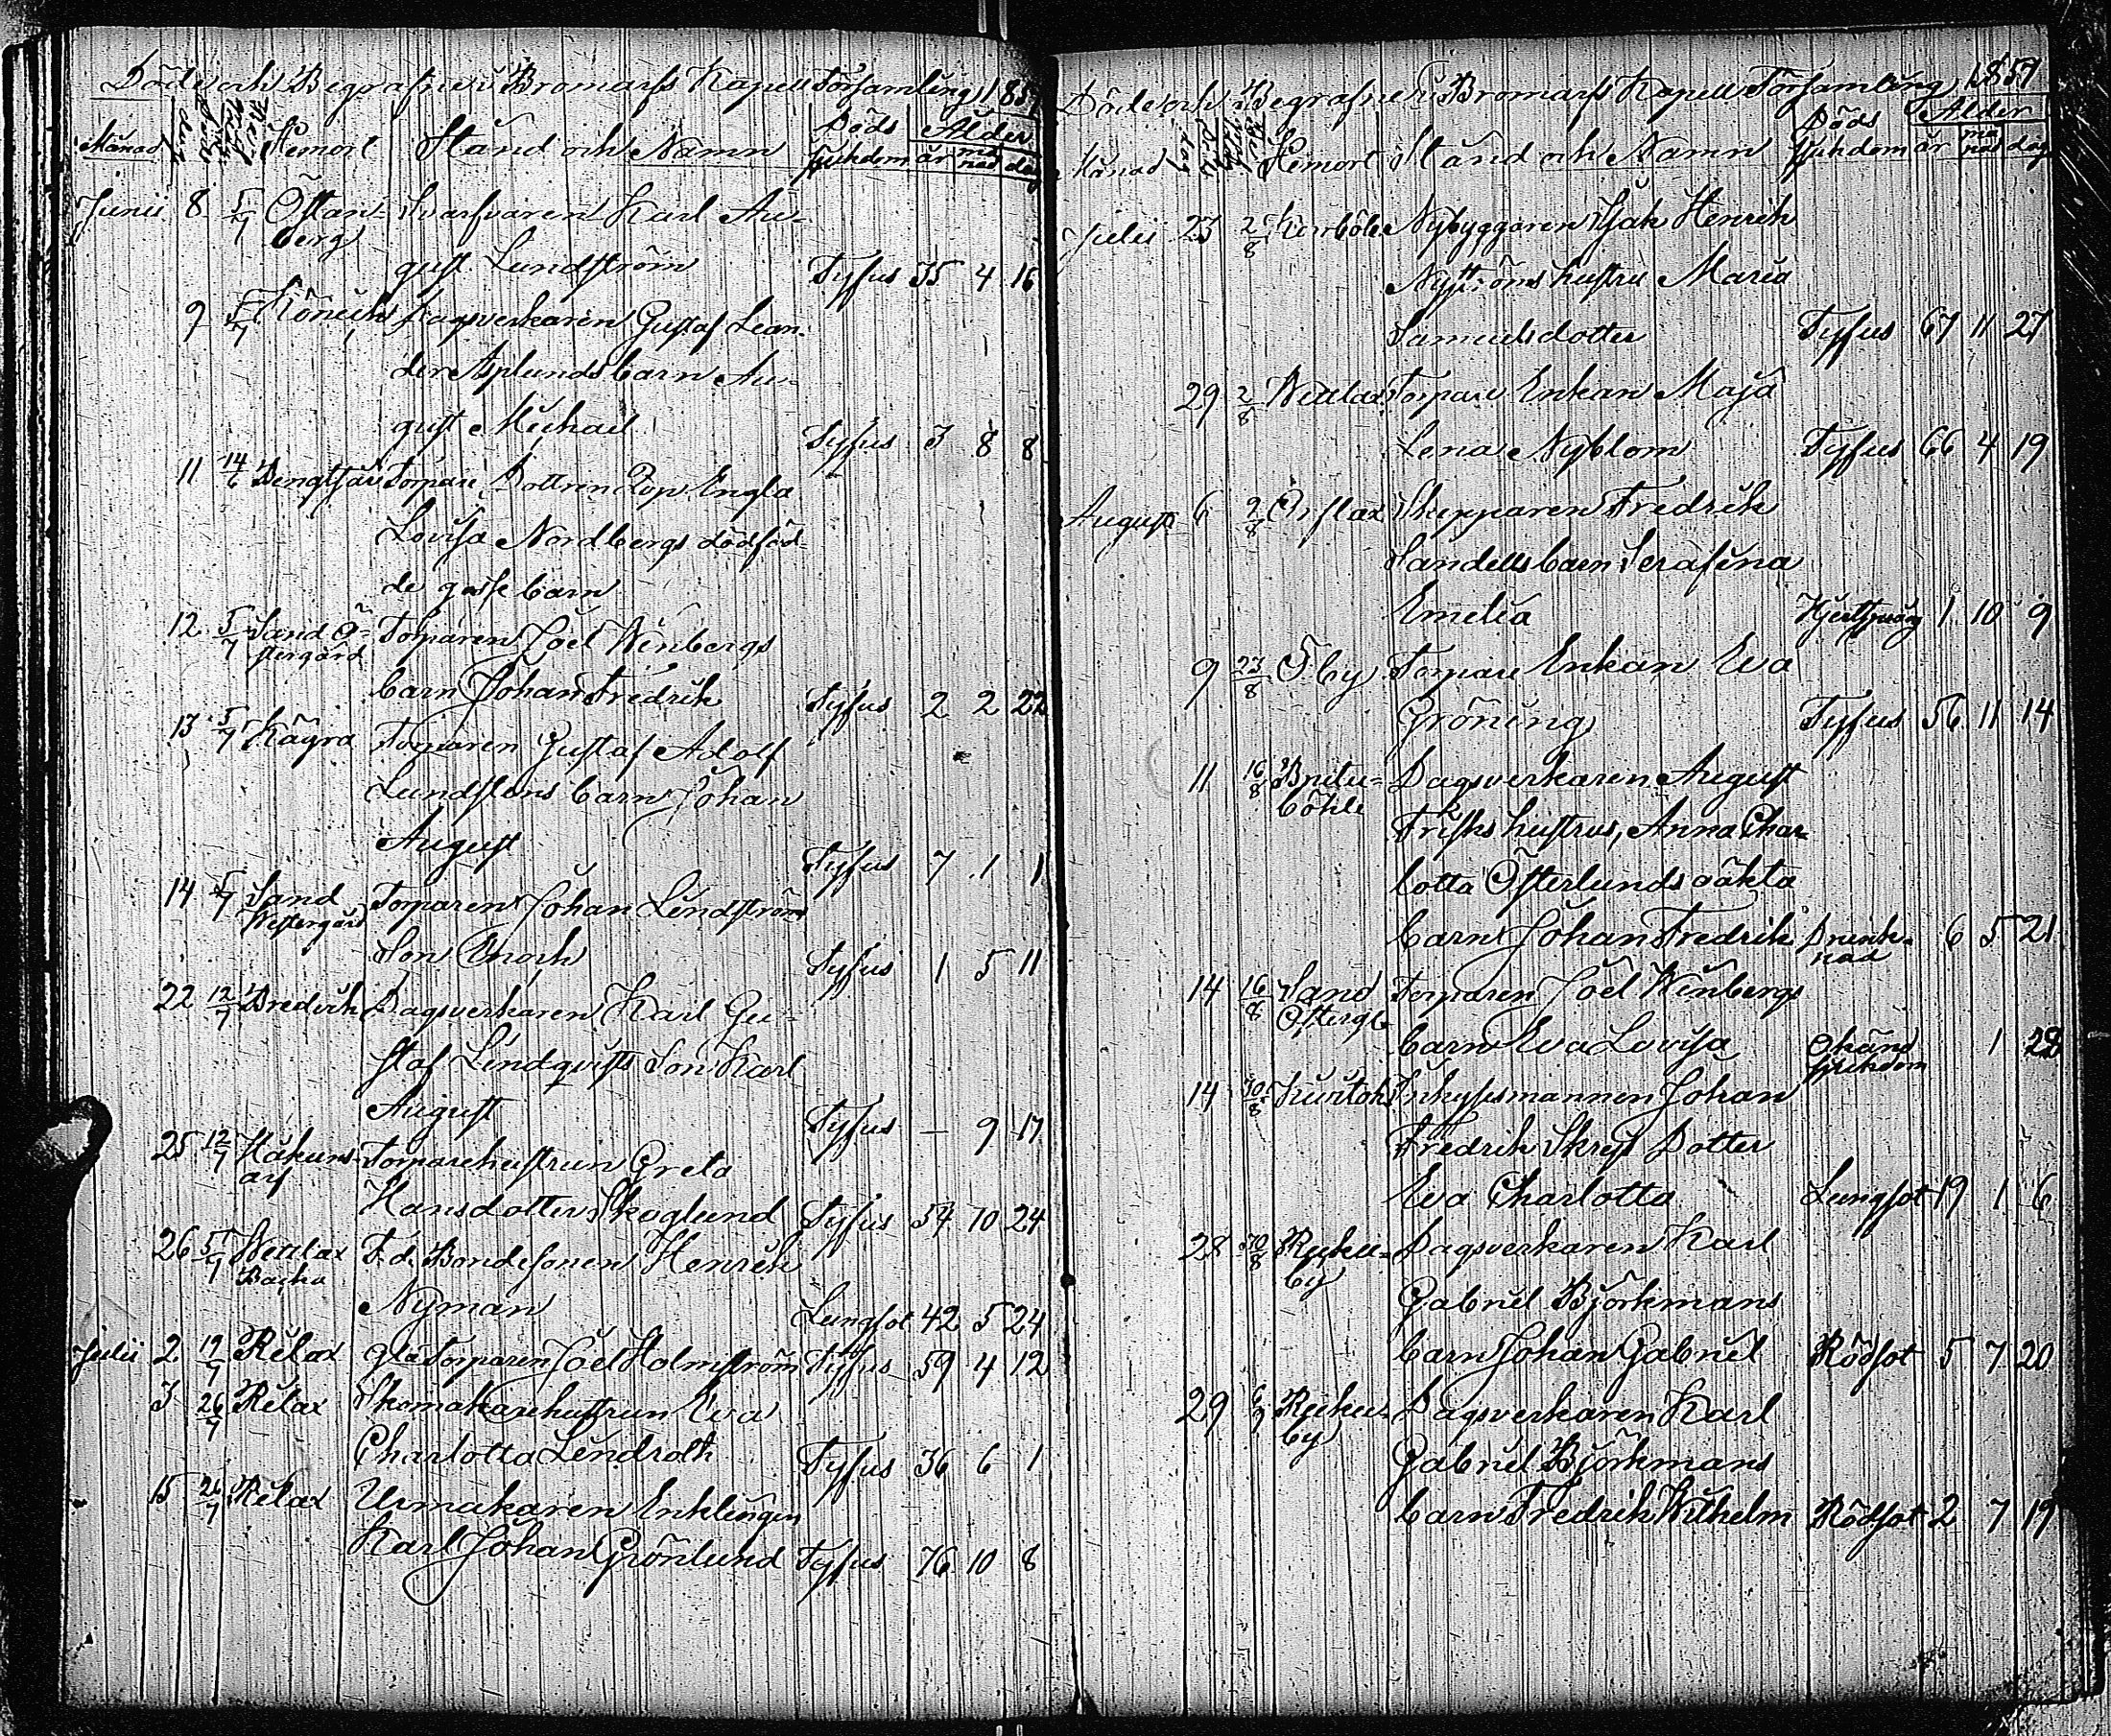 Döde och Begrafne i Bromarfs Kapell Församling 1857
Månad Hemort Stånd och Namn Döds sjukdom Ålder år månad dag
Junii 8 5/7 Östan- Svarfvaren Karl Au-
berg gust Lundström Tyfus 35 4 16
9 5/7 Dagsverkaren Gustaf Lean-
der Asplunds barn Au-
gust Michail Tyfus 3 8 8
11 14/6 Bengtsår Torpare Dottren Pig. Engla
Lovisa Nordbergs dödföd-
de gosse barn
12 5/7 Sand Ö- Torparen Joel Winbergs
stergård
barn Johan Fredrik Tyfus 2 2 22
13 5/7 Kägra Torparen Gustaf Adolf
Lundstens barn Johan
August Tyfus 7 1 1
14 5/7 Sand Torparen Johan Lindström
Westergård
Son Enoch Tyfus 1 5 11
22 12/7 Bredvik Dagsverkaren Karl Gu-
staf Lindqvists Son Karl
August Tyfus — 9 17
25 12/7 Håkans- Torparehustrun Greta
arf
Hansdotter Skoglund Tyfus 54 10 24
26 5/7 Wettlax F. d. Bondesonen Henrik
Backa
Nyman Lungsot 42 5 24
Julii 2 19/7 Rilax Torparen Joel Holmström Tyfus 59 4 12
3 26/7 Rilax Skomakarehustrun Eva
Charlotta Lindroth Tyfus 36 6 1
15 26/7 Rilax Urmakaren Enklingen
Karl Johan Grönlund Tyfus 76 10 8
Döde och Begrafne i Bromarfs Kapell Församling 1857
Månad Hemort Stånd och Namn Döds sjukdom Ålder år månad dag
Julii 23 2/8 Norrböle Nybyggaren Isak Henrik
Nyströms hustru Maria
Samuelsdotter Tyfus 67 11 27
29 2/8 Wettlax Torpare Enkan Maja
Lena Nyblom Tyfus 66 4 19
August 6 9/8 Orslax Skepparen Fredrik
Sandells barn Serafina
Emelia 1 10 9
9 23/8 Öby Torpare Enkan Eva
Gröning Tyfus 56 11 14
11 16/8 Dagsverkaren August
böhle
Frisks hustrus, Anna Char-
lotta Österlunds oäkta
barn Johan Fredrik Drunk- 6 5 21
nad
14 16/8 Sand Torparen Joel Winbergs
Östergd
barn Eva Lovisa Okänd 1 28
sjukdom
14 30/8 Inhysesmannen Johan
Fredrik Dotter
Eva Charlotta Lungsot 19 1 6
28 30/8 Dagsverkaren Karl
by
Gabriel Björkmans
barn Johan Gabriel Rödsot 5 7 20
29 6/9 Dagsverkaren Karl
by
Gabriel Björkmans
barn Fredrik Wilhelm Rödsot 2 7 19